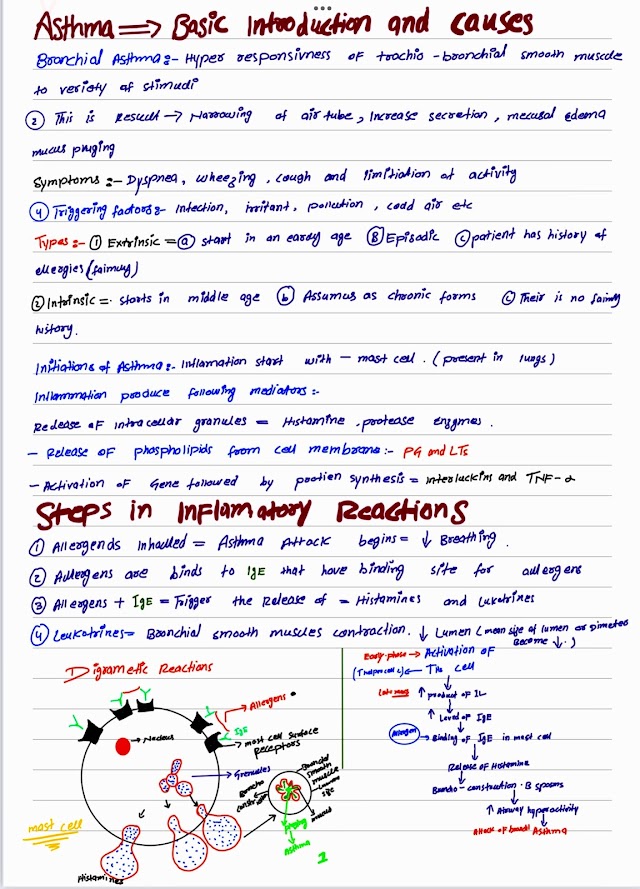 Asthma => Basic Introduction and causes
Bronchial Asthma:- Hyper responsivness of trachio -bronchial smooth muscle
to veriety of stimudi
② This is Result → Narrowing of air tube, Increase secretion, mecusal edema
mucus pluging
Symptoms:- Dyspnea, wheezing, cough and limitiation of activity
④ Triggering factors:- Infection, irritant, pollution, cold air etc
Types:- ① Extrinsic = ⓐ start in an eardy age Ⓑ Episodic ⓒ patient has history of
ellergies (faimuy)
② Intrinsic =. starts in middle age ⓑ Assumus as chronic forms ⓒ Their is no faimly
history.
Initiations of Asthma:- Inflamation start with - mast cell. (present in lungs)
Inflammation produce following mediators:-
Redease of intracellar granules = Histamine .protease enzymes.
- Release of phospholipids from cell membrane:- PG and LTs
- Activation of Gene followed by protien synthesis = interluckins and TNF-α
Steps in Inflamatory Reactions
① Allergends Inhalled = Asthma Attack begins = ↓ Breathing.
② Adlergens are binds to IgE that have binding site for allergens
③ Allergens + IgE = Trigger the Release of = Histamines and Lukotrines
④ Leukotrines = Bronchial smooth muscles contraction. ↓ Lumen (mean size of lumen or Dimeter
Become ↓.)
Digrametic Reactions
Allergens
IgE
Nucleus
most cell surface
receptors
Grenules
Broncho
constriction
Bronchial
smooth
muscle
Lumen
size
mucus
Asthma
1
mast cell
Histamines
Early-phase → Activation of
The cell
Late phase ↑ product of IL
↑ Level of IgE
Allergen → Binding of IgE in mast cell
Release of Histamine
Bronchio-construction. B spasms
↑ Airway hyperactivity
Attack of Asthma